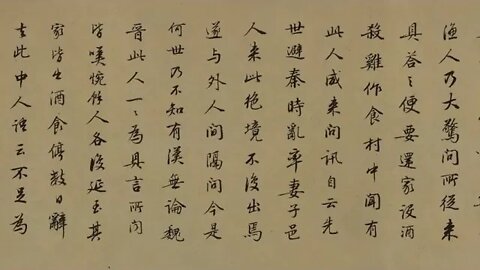 漁人乃大驚問所從来
具答之便要還家設酒
殺雞作食村中聞有
此人咸来問訊自云先
世避秦時亂率妻子邑
人来此絶境不復出焉
遂与外人間隔問今是
何世乃不知有漢無論魏
晉此人一〻為具言所聞
皆嘆惋餘人各復延至其
家皆出酒食停數日辭
去此中人語云不足為